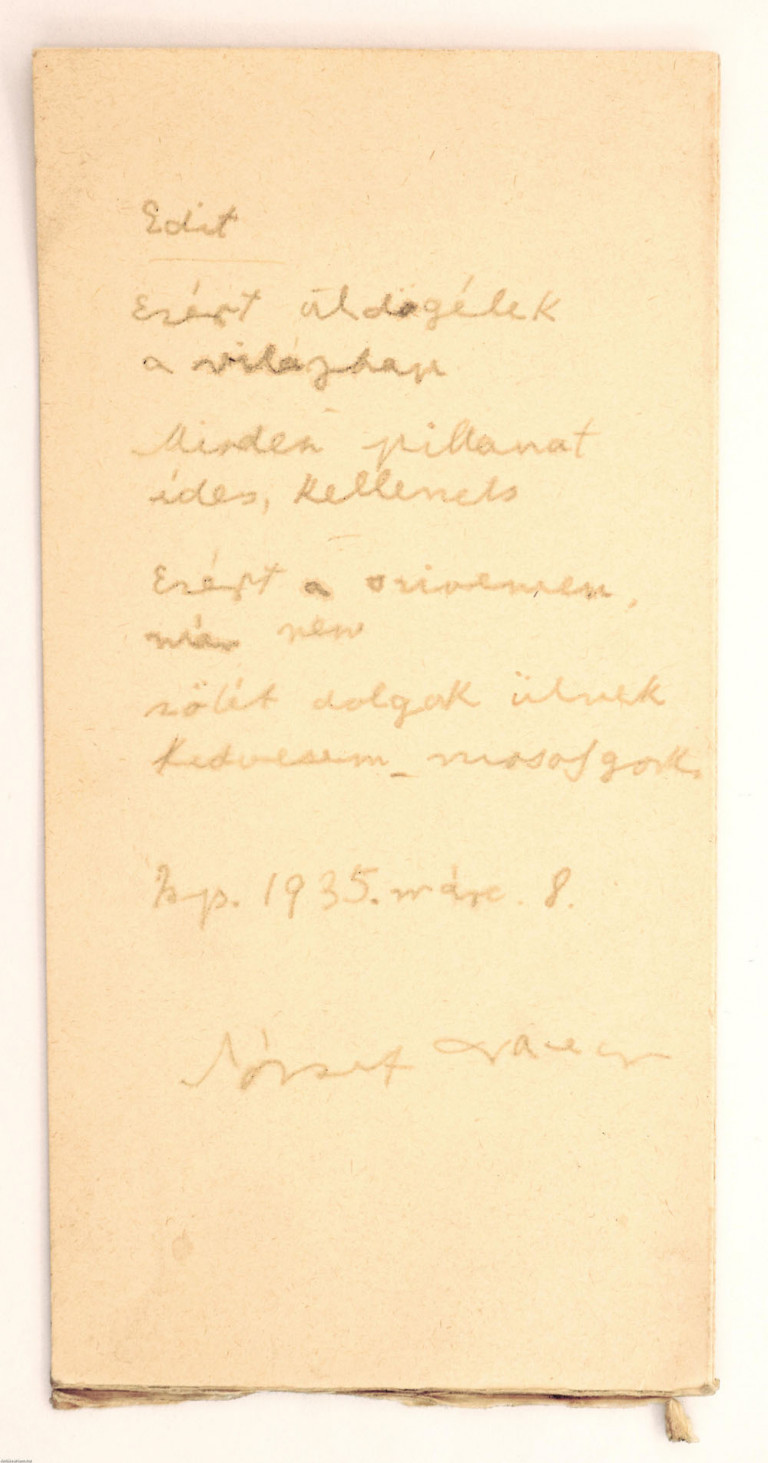 Edit
Ezért üldögélek
a világban
Minden pillanat
édes, kellemes
Ezért a szivemen,
már nem
sötét dolgok ülnek
Kedvesem _ mosolygok.
Bp. 1935. márc. 8.
József